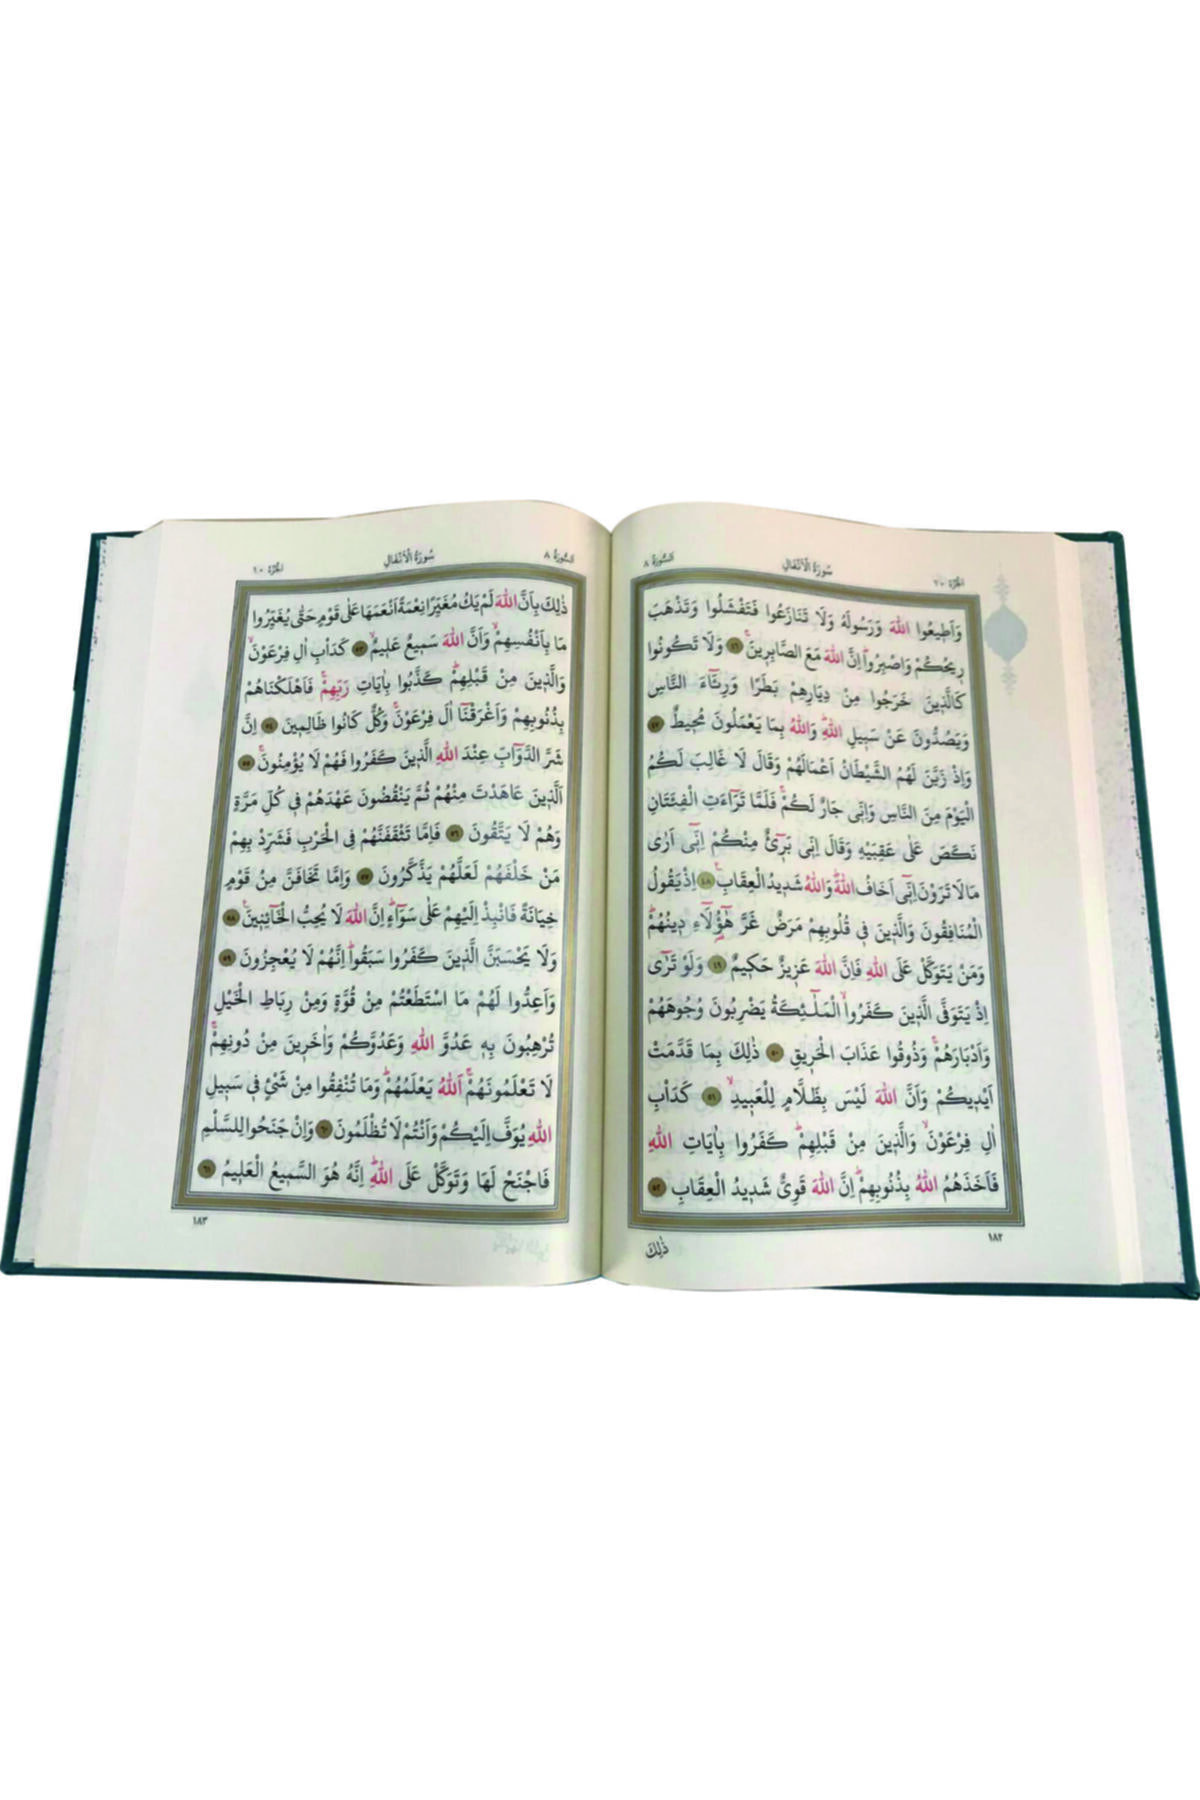 السُّورَةُ ٨
سُورَةُ الْاَنْفَالِ
اَلْجُزْءُ ١٠
وَاَط۪يعُوا اللّٰهَ وَرَسُولَهُ وَلَا تَنَازَعُوا فَتَفْشَلُوا وَتَذْهَبَ
ر۪يحُكُمْ وَاصْبِرُواۜ اِنَّ اللّٰهَ مَعَ الصَّابِر۪ينَۚ ٤٦ وَلَا تَكُونُوا
كَالَّذ۪ينَ خَرَجُوا مِنْ دِيَارِهِمْ بَطَرًا وَرِئَٓاءَ النَّاسِ
وَيَصُدُّونَ عَنْ سَب۪يلِ اللّٰهِۜ وَاللّٰهُ بِمَا يَعْمَلُونَ مُح۪يطٌ ٤٧
وَاِذْ زَيَّنَ لَهُمُ الشَّيْطَانُ اَعْمَالَهُمْ وَقَالَ لَا غَالِبَ لَكُمُ
الْيَوْمَ مِنَ النَّاسِ وَاِنّ۪ي جَارٌ لَكُمْۚ فَلَمَّا تَرَٓاءَتِ الْفِئَتَانِ
نَكَصَ عَلٰى عَقِبَيْهِ وَقَالَ اِنّ۪ي بَر۪ٓيءٌ مِنْكُمْ اِنّ۪ٓي اَرٰى
مَا لَا تَرَوْنَ اِنّ۪ٓي اَخَافُ اللّٰهَۜ وَاللّٰهُ شَد۪يدُ الْعِقَابِ۟ ٤٨ اِذْ يَقُولُ
الْمُنَافِقُونَ وَالَّذ۪ينَ ف۪ي قُلُوبِهِمْ مَرَضٌ غَرَّ هٰٓؤُ۬لَٓاءِ د۪ينُهُمْۜ
وَمَنْ يَتَوَكَّلْ عَلَى اللّٰهِ فَاِنَّ اللّٰهَ عَز۪يزٌ حَك۪يمٌ ٤٩ وَلَوْ تَرٰٓى
اِذْ يَتَوَفَّى الَّذ۪ينَ كَفَرُواۙ الْمَلٰٓئِكَةُ يَضْرِبُونَ وُجُوهَهُمْ
وَاَدْبَارَهُمْۚ وَذُوقُوا عَذَابَ الْحَر۪يقِ ٥٠ ذٰلِكَ بِمَا قَدَّمَتْ
اَيْد۪يكُمْ وَاَنَّ اللّٰهَ لَيْسَ بِظَلَّامٍ لِلْعَب۪يدِۙ ٥١ كَدَاْبِ
اٰلِ فِرْعَوْنَۙ وَالَّذ۪ينَ مِنْ قَبْلِهِمْۜ كَفَرُوا بِاٰيَاتِ اللّٰهِ
فَاَخَذَهُمُ اللّٰهُ بِذُنُوبِهِمْۜ اِنَّ اللّٰهَ قَوِيٌّ شَد۪يدُ الْعِقَابِ ٥٢
١٨٢
ذٰلِكَ
السُّورَةُ ٨
سُورَةُ الْاَنْفَالِ
اَلْجُزْءُ ١٠
ذٰلِكَ بِاَنَّ اللّٰهَ لَمْ يَكُ مُغَيِّرًا نِعْمَةً اَنْعَمَهَا عَلٰى قَوْمٍ حَتّٰى يُغَيِّرُوا
مَا بِاَنْفُسِهِمْۙ وَاَنَّ اللّٰهَ سَم۪يعٌ عَل۪يمٌۙ ٥٣ كَدَاْبِ اٰلِ فِرْعَوْنَۙ
وَالَّذ۪ينَ مِنْ قَبْلِهِمْۜ كَذَّبُوا بِاٰيَاتِ رَبِّهِمْۚ فَاَهْلَكْنَاهُمْ
بِذُنُوبِهِمْ وَاَغْرَقْنَٓا اٰلَ فِرْعَوْنَۚ وَكُلٌّ كَانُوا ظَالِم۪ينَ ٥٤ اِنَّ
شَرَّ الدَّوَٓابِّ عِنْدَ اللّٰهِ الَّذ۪ينَ كَفَرُوا فَهُمْ لَا يُؤْمِنُونَۚ ٥٥
اَلَّذ۪ينَ عَاهَدْتَ مِنْهُمْ ثُمَّ يَنْقُضُونَ عَهْدَهُمْ ف۪ي كُلِّ مَرَّةٍ
وَهُمْ لَا يَتَّقُونَ ٥٦ فَاِمَّا تَثْقَفَنَّهُمْ فِي الْحَرْبِ فَشَرِّدْ بِهِمْ
مَنْ خَلْفَهُمْ لَعَلَّهُمْ يَذَّكَّرُونَ ٥٧ وَاِمَّا تَخَافَنَّ مِنْ قَوْمٍ
خِيَانَةً فَانْبِذْ اِلَيْهِمْ عَلٰى سَوَٓاءٍۜ اِنَّ اللّٰهَ لَا يُحِبُّ الْخَٓائِن۪ينَ۟ ٥٨
وَلَا يَحْسَبَنَّ الَّذ۪ينَ كَفَرُوا سَبَقُواۜ اِنَّهُمْ لَا يُعْجِزُونَ ٥٩
وَاَعِدُّوا لَهُمْ مَا اسْتَطَعْتُمْ مِنْ قُوَّةٍ وَمِنْ رِبَاطِ الْخَيْلِ
تُرْهِبُونَ بِه۪ عَدُوَّ اللّٰهِ وَعَدُوَّكُمْ وَاٰخَر۪ينَ مِنْ دُونِهِمْۚ
لَا تَعْلَمُونَهُمْۚ اَللّٰهُ يَعْلَمُهُمْۜ وَمَا تُنْفِقُوا مِنْ شَيْءٍ ف۪ي سَب۪يلِ
اللّٰهِ يُوَفَّ اِلَيْكُمْ وَاَنْتُمْ لَا تُظْلَمُونَ ٦٠ وَاِنْ جَنَحُوا لِلسَّلْمِ
فَاجْنَحْ لَهَا وَتَوَكَّلْ عَلَى اللّٰهِۜ اِنَّهُ هُوَ السَّم۪يعُ الْعَل۪يمُ ٦١
١٨٣